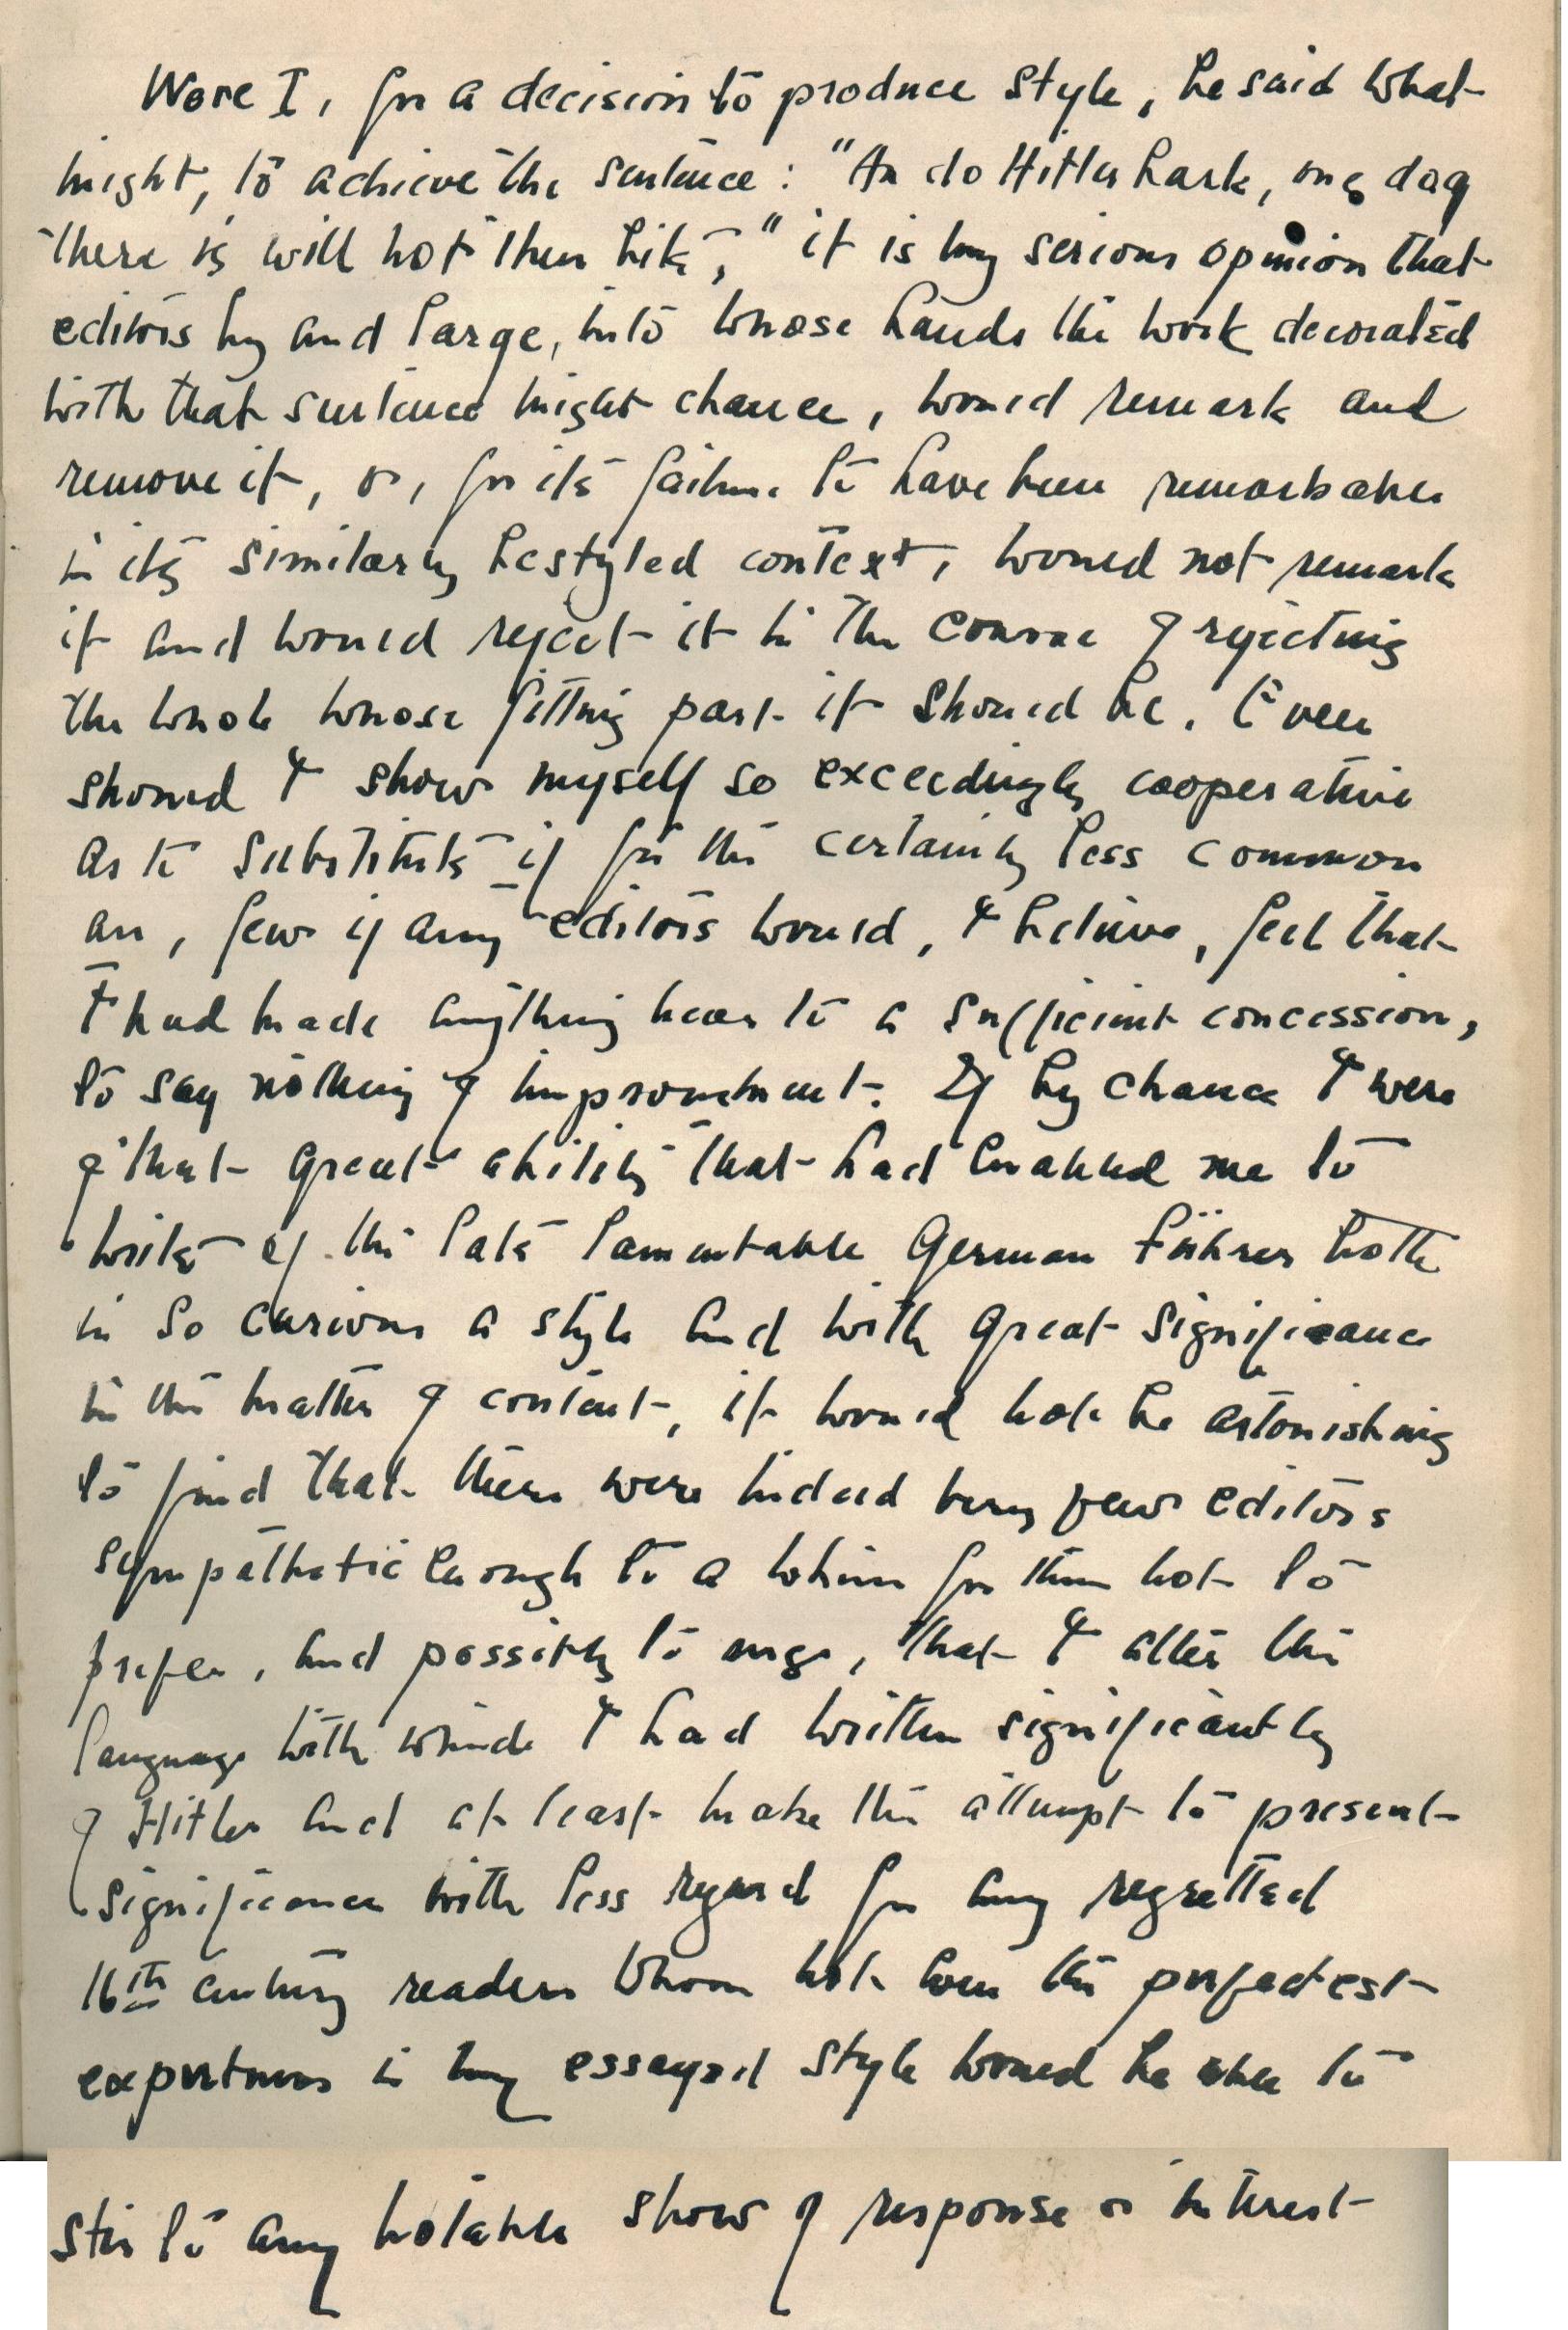 Were I, for a decision to produce style, be said what
might, to achieve the sentence: "An do Hitler bark, one day
there is will not then bite," it is my serious opinion that
editors by and large, into whose hands the work decorated
with that sentence might chance, would remark and
remove it, or, for its failure to have been remarkable
in its similarly bestyled context, would not remark
it and would reject it in the course of rejecting
the whole whose fitting part it should be. Even
should I show myself so exceedingly cooperative
as to substitute if for the certainly less common
an, few if any editors would, I believe, feel that
I had made anything near to a sufficient concession,
to say nothing of improvement. If by chance I were
of that great ability that had enabled me to
write of the late lamentable German Führer both
in so curious a style and with great significance
in the matter of content, it would not be astonishing
to find that there were indeed very few editors
sympathetic enough to a whim for them not to
prefer, and possibly to urge, that I alter the
language with which I had written significantly
of Hitler and at least make the attempt to present
significance with less regard for any regretted
16th century readers whom not even the perfectest
expertness in my essayed style would be able to
stir to any notable show of response or interest